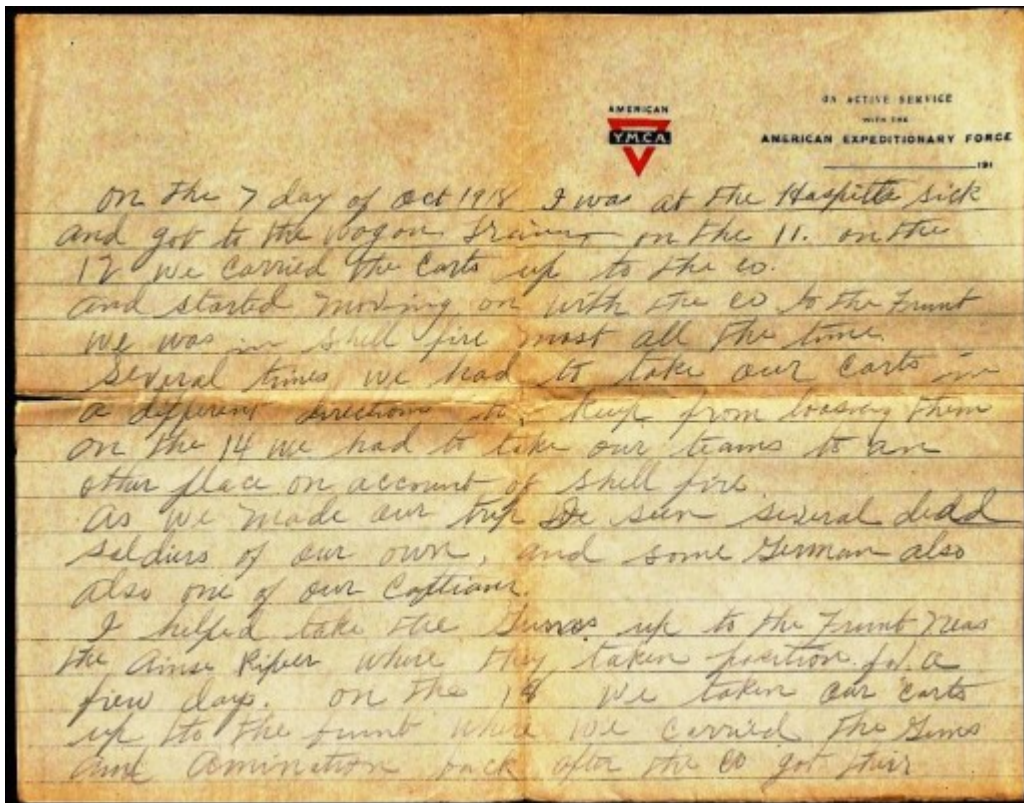 AMERICAN
YMCA
ON ACTIVE SERVICE
WITH THE
AMERICAN EXPEDITIONARY FORCE
191
on the 7 day of oct 1918 I was at the Haspitle sick
and got to the wagon on the 11. on the
12 we carried the carts up to the co.
and started moving on with the co to the Frunt
we was in shell fire most all the time
Several times we had to take our carts in
a different directions to keep from loosing them
on the 14 we had to take our teams to an
other place on account of shell fire
As we made our trip We seen several dead
soldiers of our own, and some German also
also one of our
I helped take the up to the Frunt near
the Ainse River where they taken position for a
few days. on the 18 we taken our carts
up to the frunt where we carried the Guns
and Aminution back after the co got their